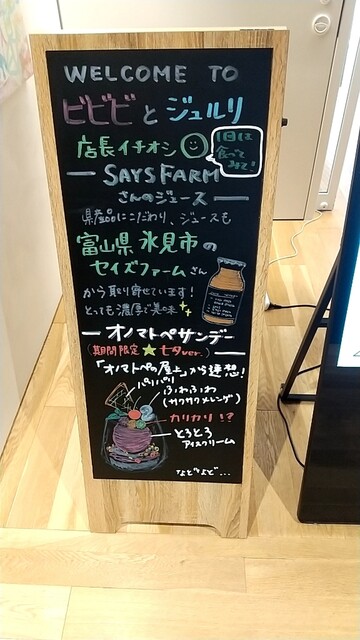 WELCOME TO
ビビビとジュルリ
店長イチオシ
1日1本
食べて
みて!
SAYS FARM
さんのジュース
県産品にこだわり、ジュースも
富山県氷見市の
セイズファームさん
から取り寄せています!
とっても濃厚で美味
オノマトペサンデー
(期間限定★七夕ver.)
「オノマトペの屋上」から連想!
パリパリ
ふわふわ
(サクサクメレンゲ)
カリカリ!?
とろとろ
アイスクリーム
などなど...